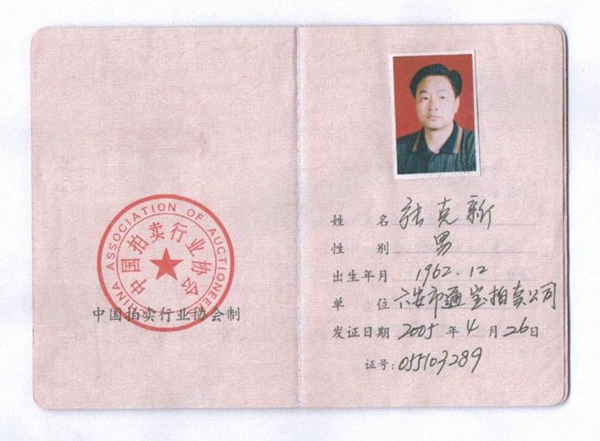 CHINA ASSOCIATION OF AUCTIONEERS
中国拍卖行业协会
中国拍卖行业协会制
姓 名 张克新
性 别 男
出生年月 1962.12
单 位 六安市通宝拍卖公司
发证日期 2005年4月26日
证号:055103289